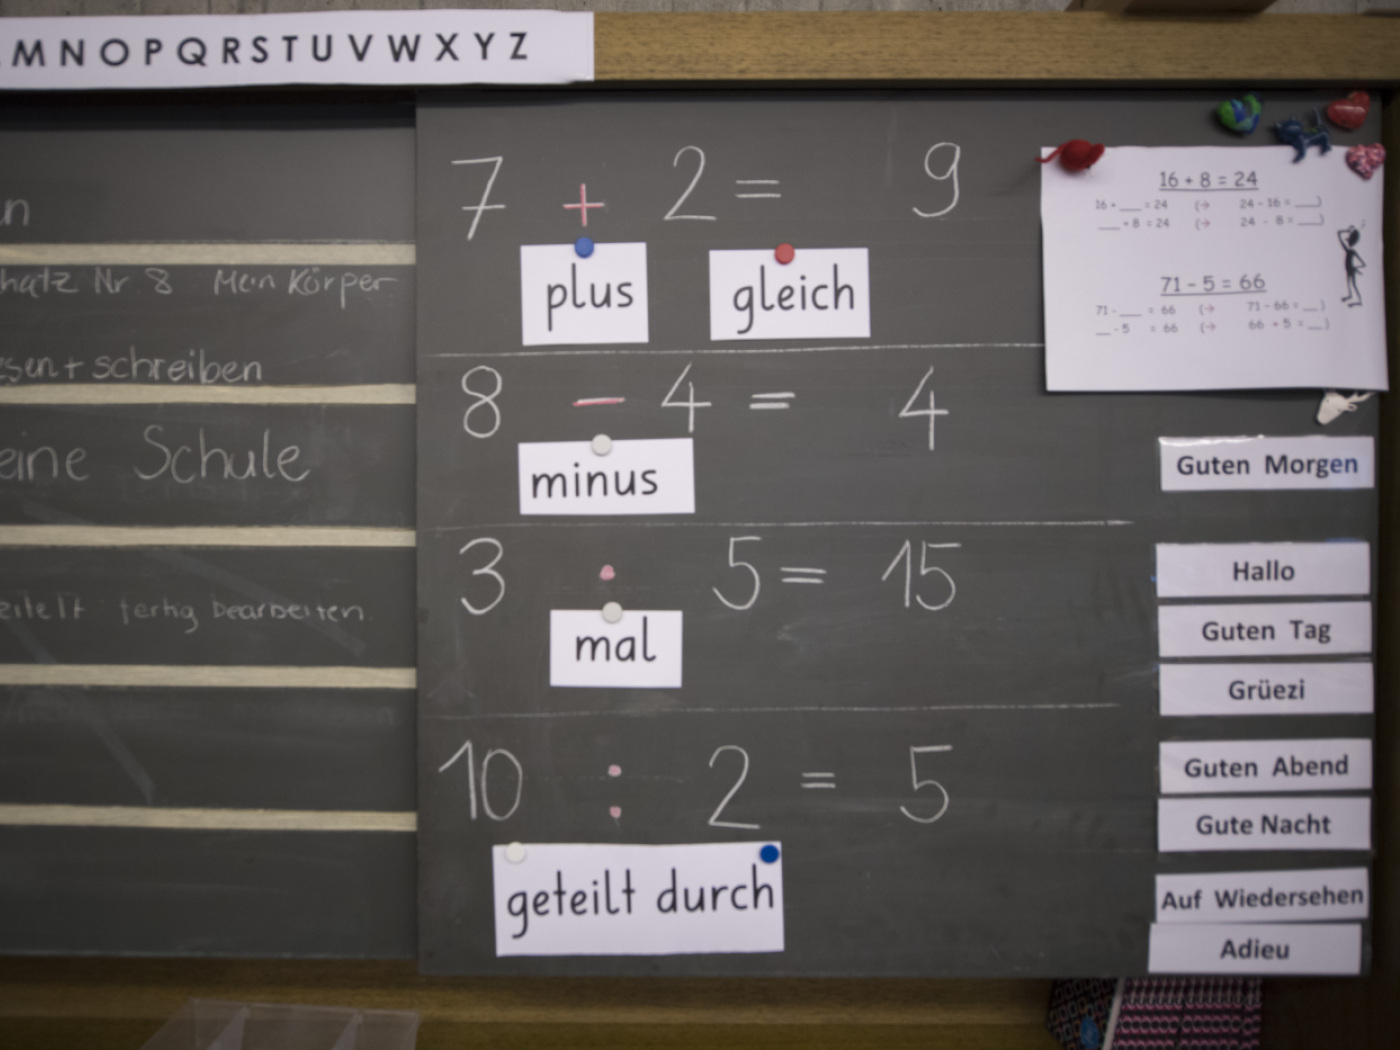 MNOPQRSTUVWXYZ
Nr. 8 Mein Körper
+ schreiben
Schule
fertig bearbeiten
7 + 2 = 9
plus gleich
8 - 4 = 4
minus
3 · 5 = 15
mal
10 : 2 = 5
geteilt durch
16 + 8 = 24
16 + ___ = 24 (→ 24 - 16 = ___)
___ + 8 = 24 (→ 24 - 8 = ___)
71 - 5 = 66
71 - ___ = 66 (→ 71 - 66 = ___)
___ - 5 = 66 (→ 66 + 5 = ___)
Guten Morgen
Hallo
Guten Tag
Grüezi
Guten Abend
Gute Nacht
Auf Wiedersehen
Adieu